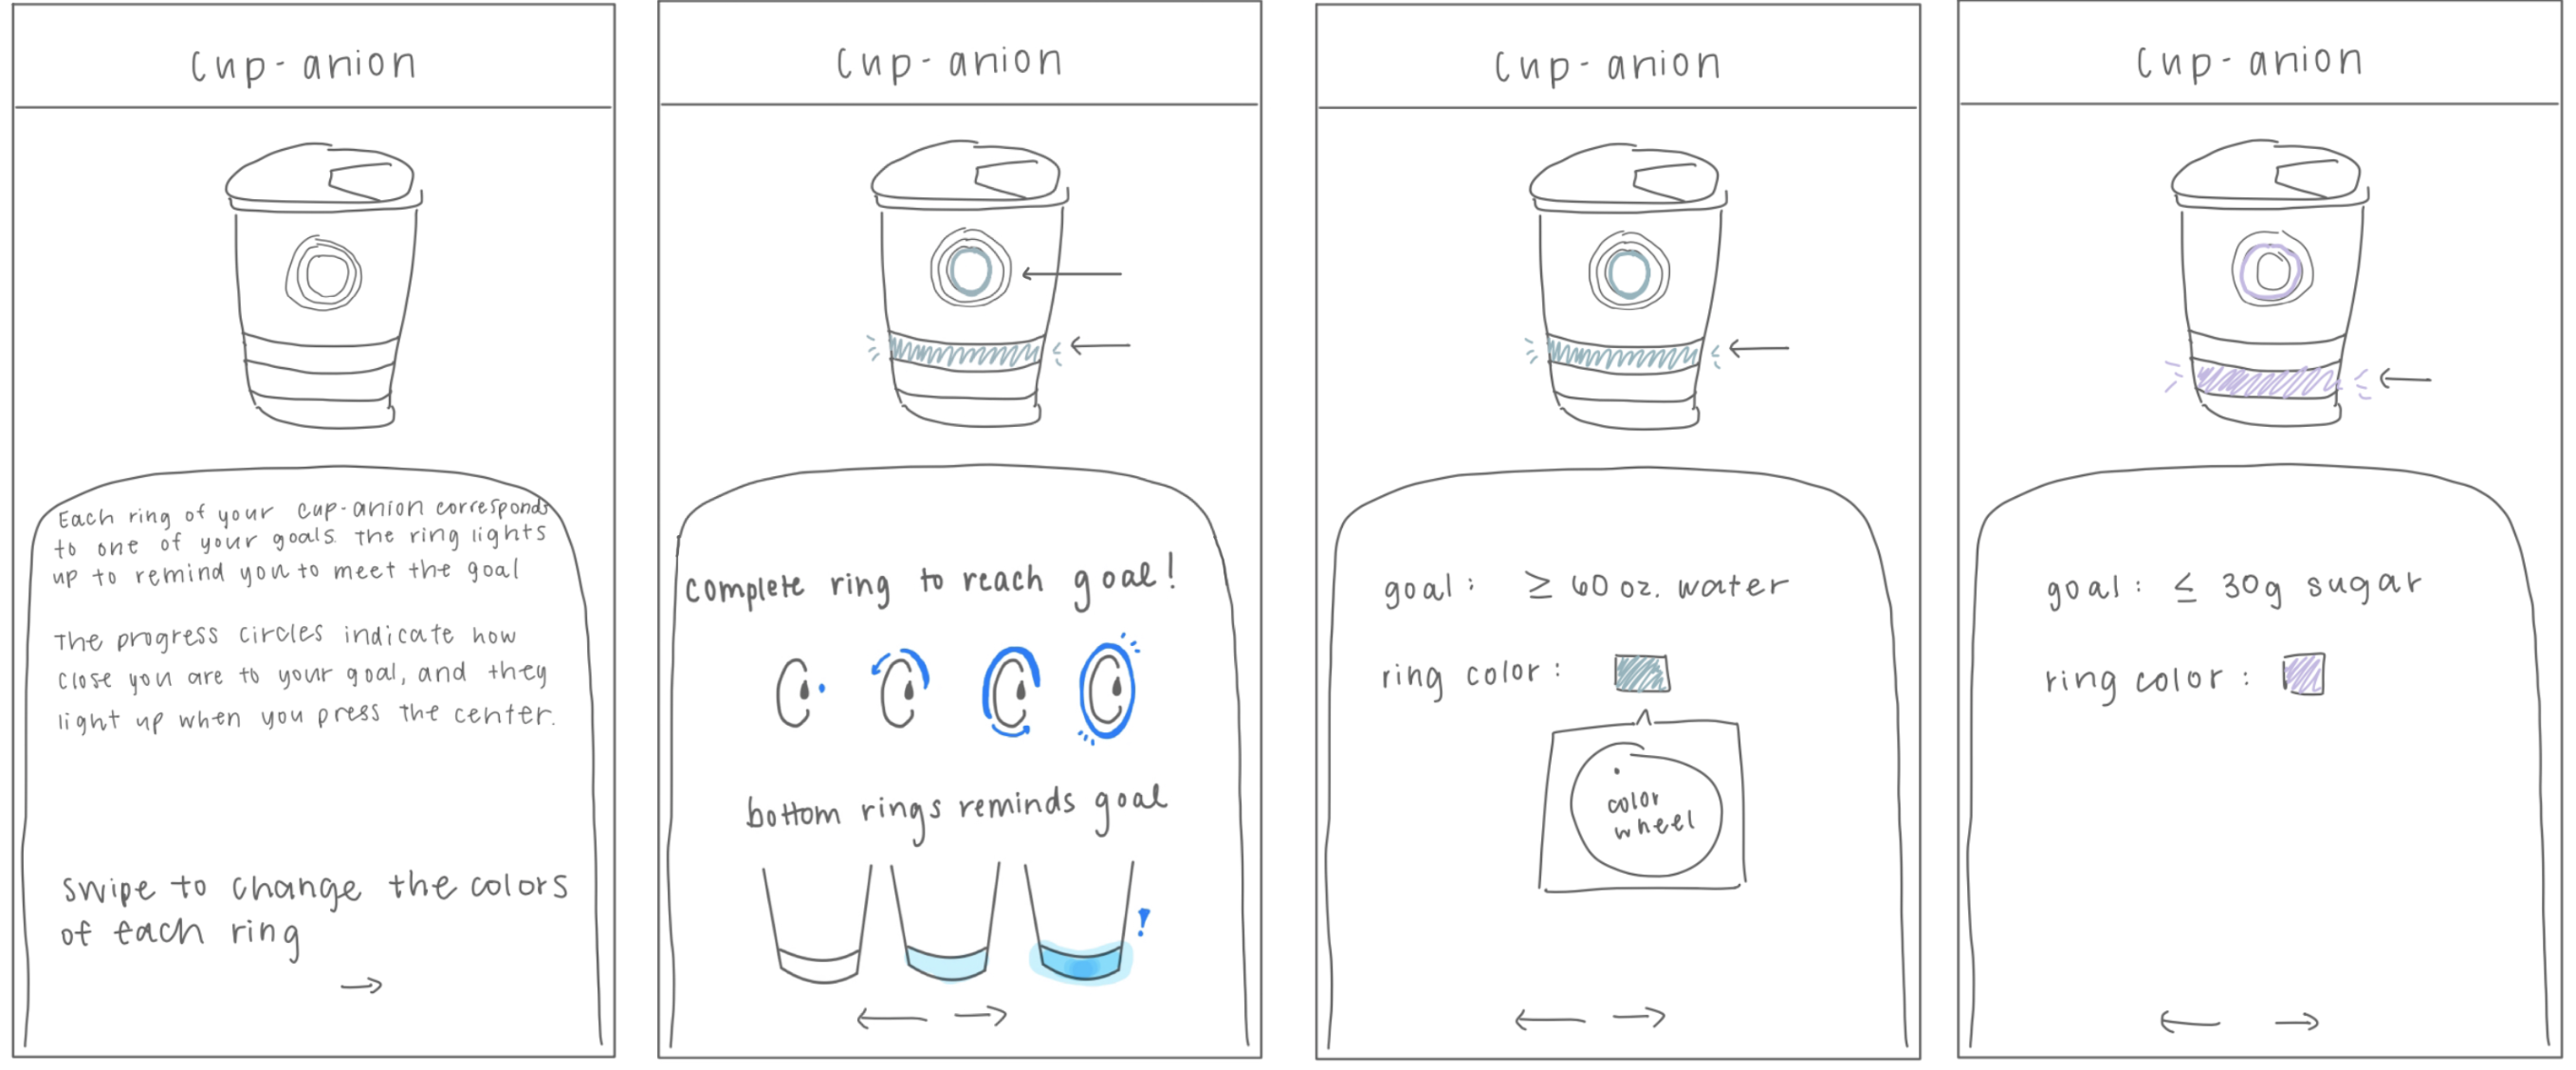 cup-anion
Each ring of your cup-anion corresponds
to one of your goals. The ring lights
up to remind you to meet the goal
The progress circles indicate how
close you are to your goal, and they
light up when you press the center.
swipe to change the colors
of each ring
cup-anion
complete ring to reach goal!
bottom rings reminds goal
!
cup-anion
goal: ≥ 60 oz. water
ring color:
color
wheel
cup-anion
goal: ≤ 30g sugar
ring color: